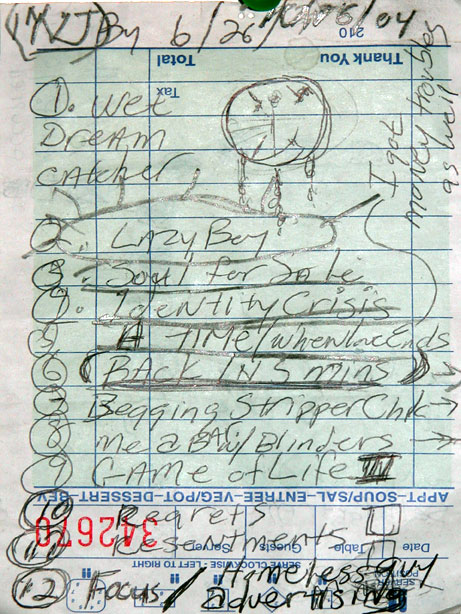 By 6/26/04
210
Thank You
Total
Tax
1. Wet
Dream
catcher
2. LAZY Boy
3. Soul for Sale
4. Identity Crisis
5 TIME/when
6 BACK IN 5 mins
7 Begging Stripper
8 me a Blinders
9 GAME of Life III
APPT–SOUP/SAL–ENTREE–VEG/POT–DESSERT–BEV
10 Regrets
342670
11 Resentments
Date
Table
Guests
Server
SERVE CLOCKWISE - LEFT TO RIGHT
12 Focus / Homeless Guy
advertising